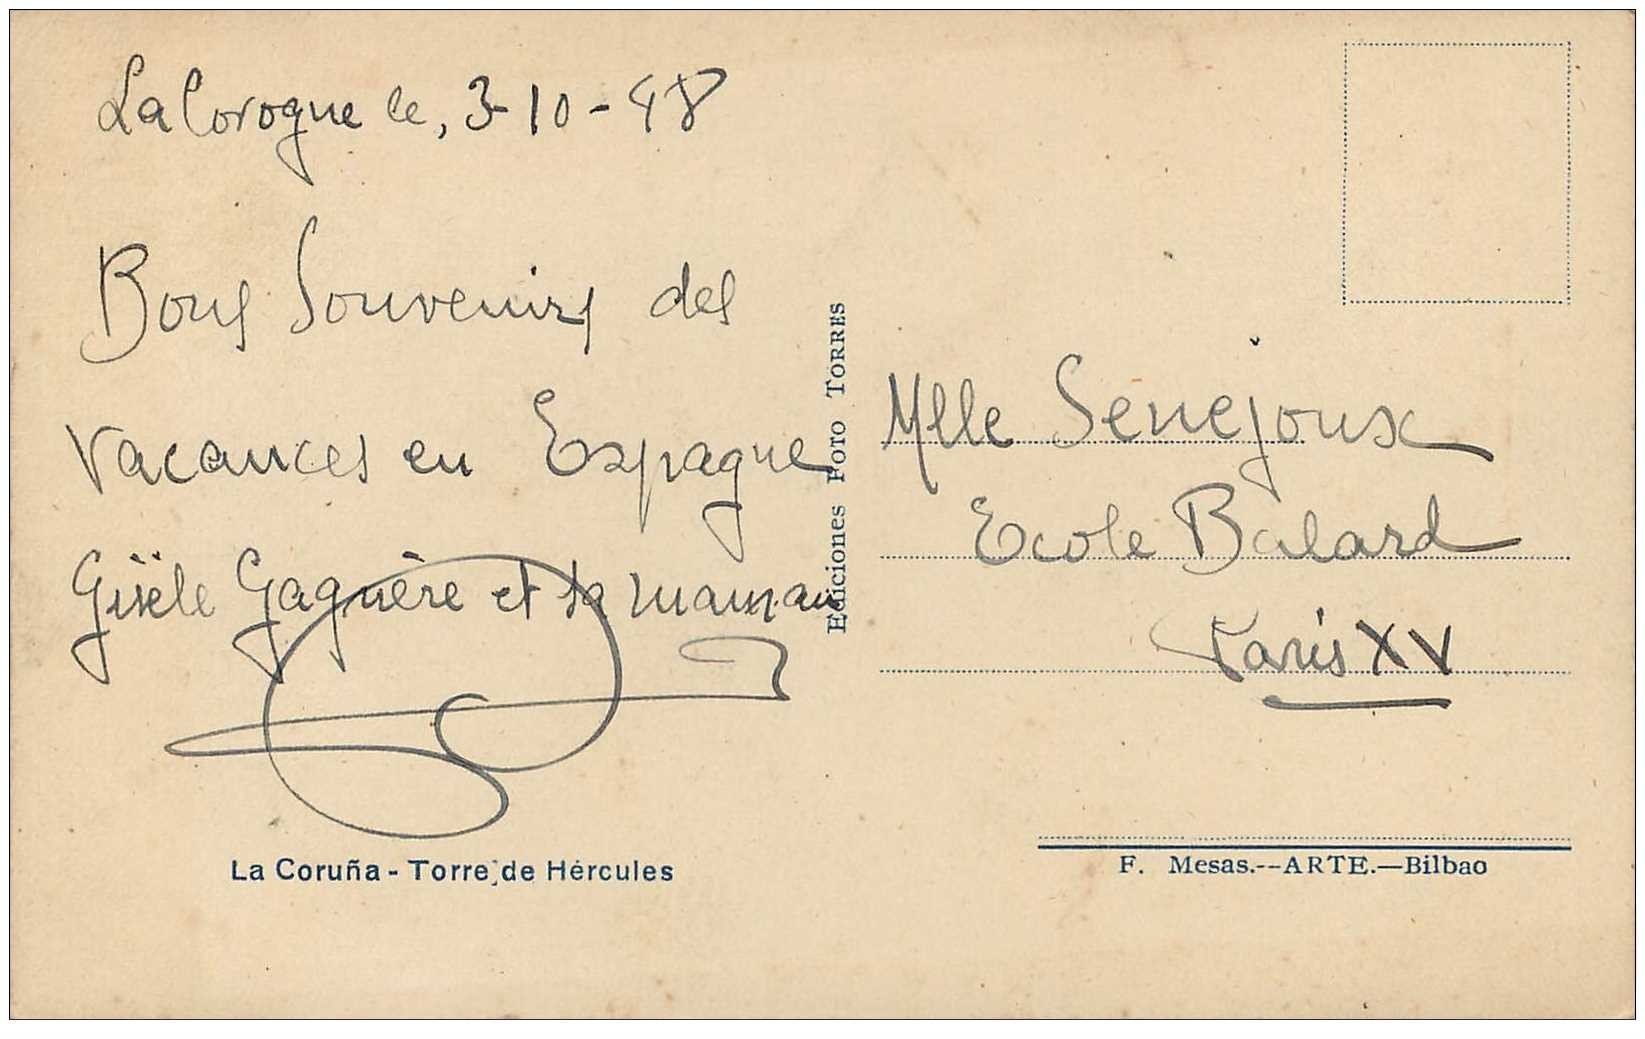 La Corogne le, 3-10-48
Bons Souvenirs des
vacances en Espagne
Gisèle Gaguère et sa maman
La Coruña - Torre de Hércules
Ediciones Foto Torres
Mlle Senejoux
Ecole Balard
Paris XV
F. Mesas.--ARTE.—Bilbao